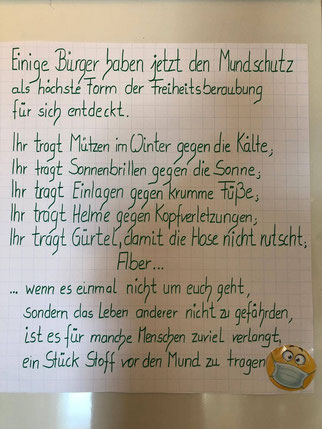 Einige Bürger haben jetzt den Mundschutz
als höchste Form der Freiheitsberaubung
für sich entdeckt.
Ihr tragt Mützen im Winter gegen die Kälte,
Ihr tragt Sonnenbrillen gegen die Sonne,
Ihr tragt Einlagen gegen krumme Füße,
Ihr tragt Helme gegen Kopfverletzungen,
Ihr tragt Gürtel, damit die Hose nicht rutscht,
Aber...
... wenn es einmal nicht um euch geht,
sondern das Leben anderer nicht zu gefährden,
ist es für manche Menschen zuviel verlangt,
ein Stück Stoff vor den Mund zu tragen